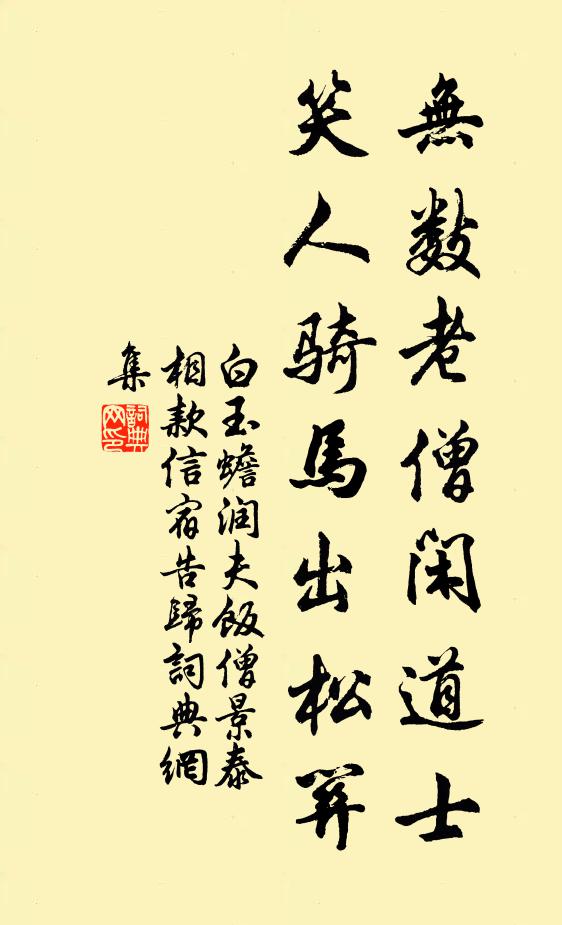 無數老僧閑道士
笑人騎馬出松關
白玉蟾潤夫飯僧景泰
相款信宿告歸詞典網
集
詞典
网印